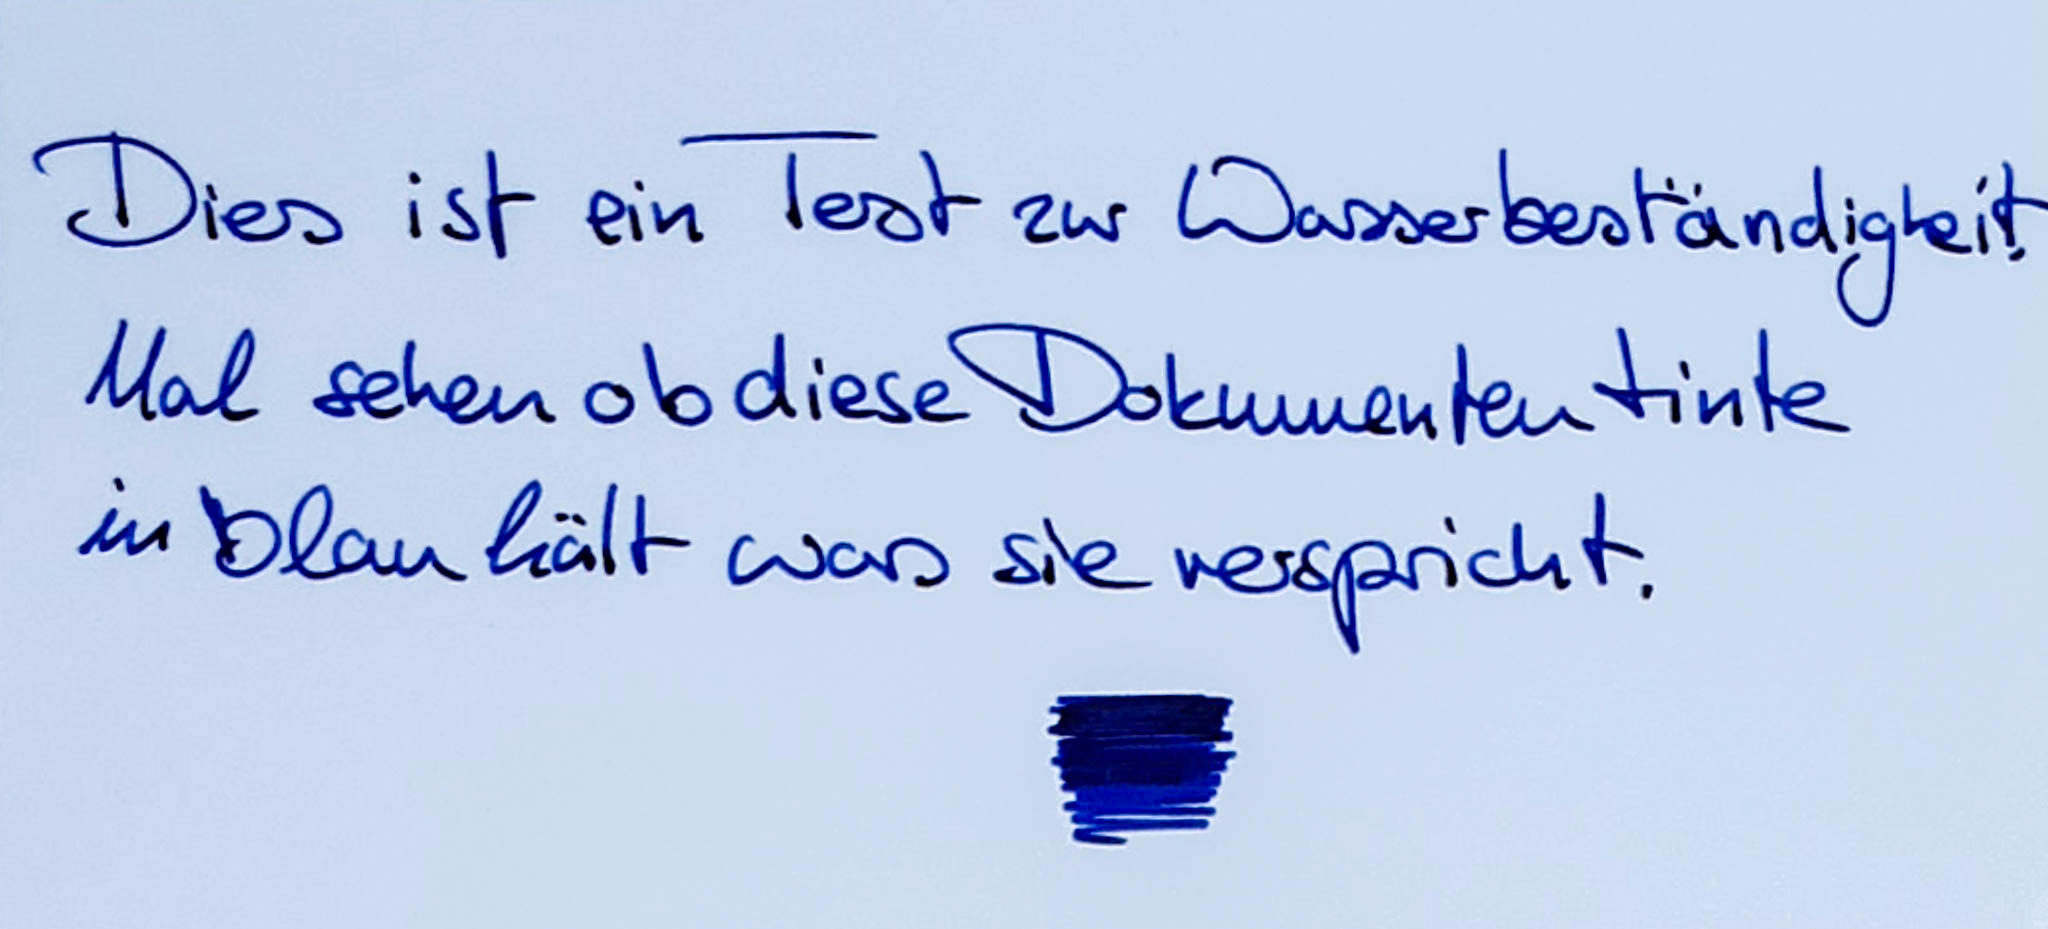 Dies ist ein Test zur Wasserbeständigkeit.
Mal sehen ob diese Dokumententinte
in blau hält was sie verspricht.